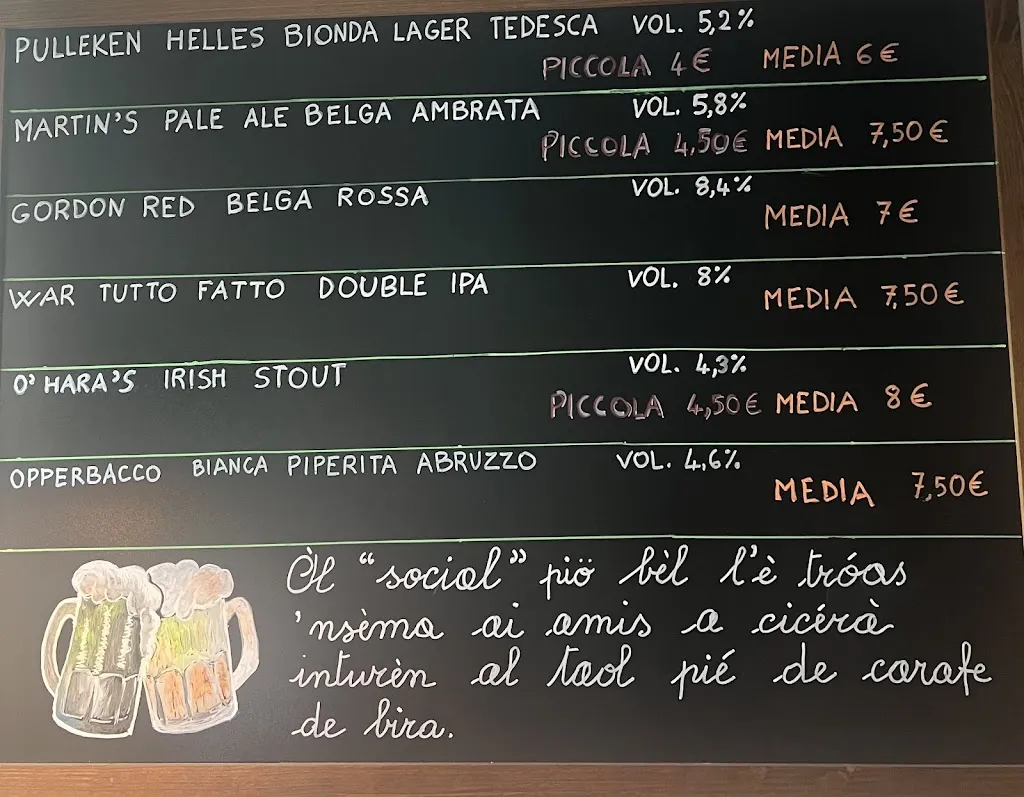 PULLEKEN HELLES BIONDA LAGER TEDESCA VOL. 5,2%
PICCOLA 4€ MEDIA 6€
MARTIN'S PALE ALE BELGA AMBRATA VOL. 5,8%
PICCOLA 4,50€ MEDIA 7,50€
GORDON RED BELGA ROSSA VOL. 8,4%
MEDIA 7€
WAR TUTTO FATTO DOUBLE IPA VOL. 8%
MEDIA 7,50€
O'HARA'S IRISH STOUT VOL. 4,3%
PICCOLA 4,50€ MEDIA 8€
OPPERBACCO BIANCA PIPERITA ABRUZZO VOL. 4,6%
MEDIA 7,50€
Òl "social" piö bèl l'è tróas
'nsèma ai amis a cicérà
inturèn al taol pié de carafe
de bira.